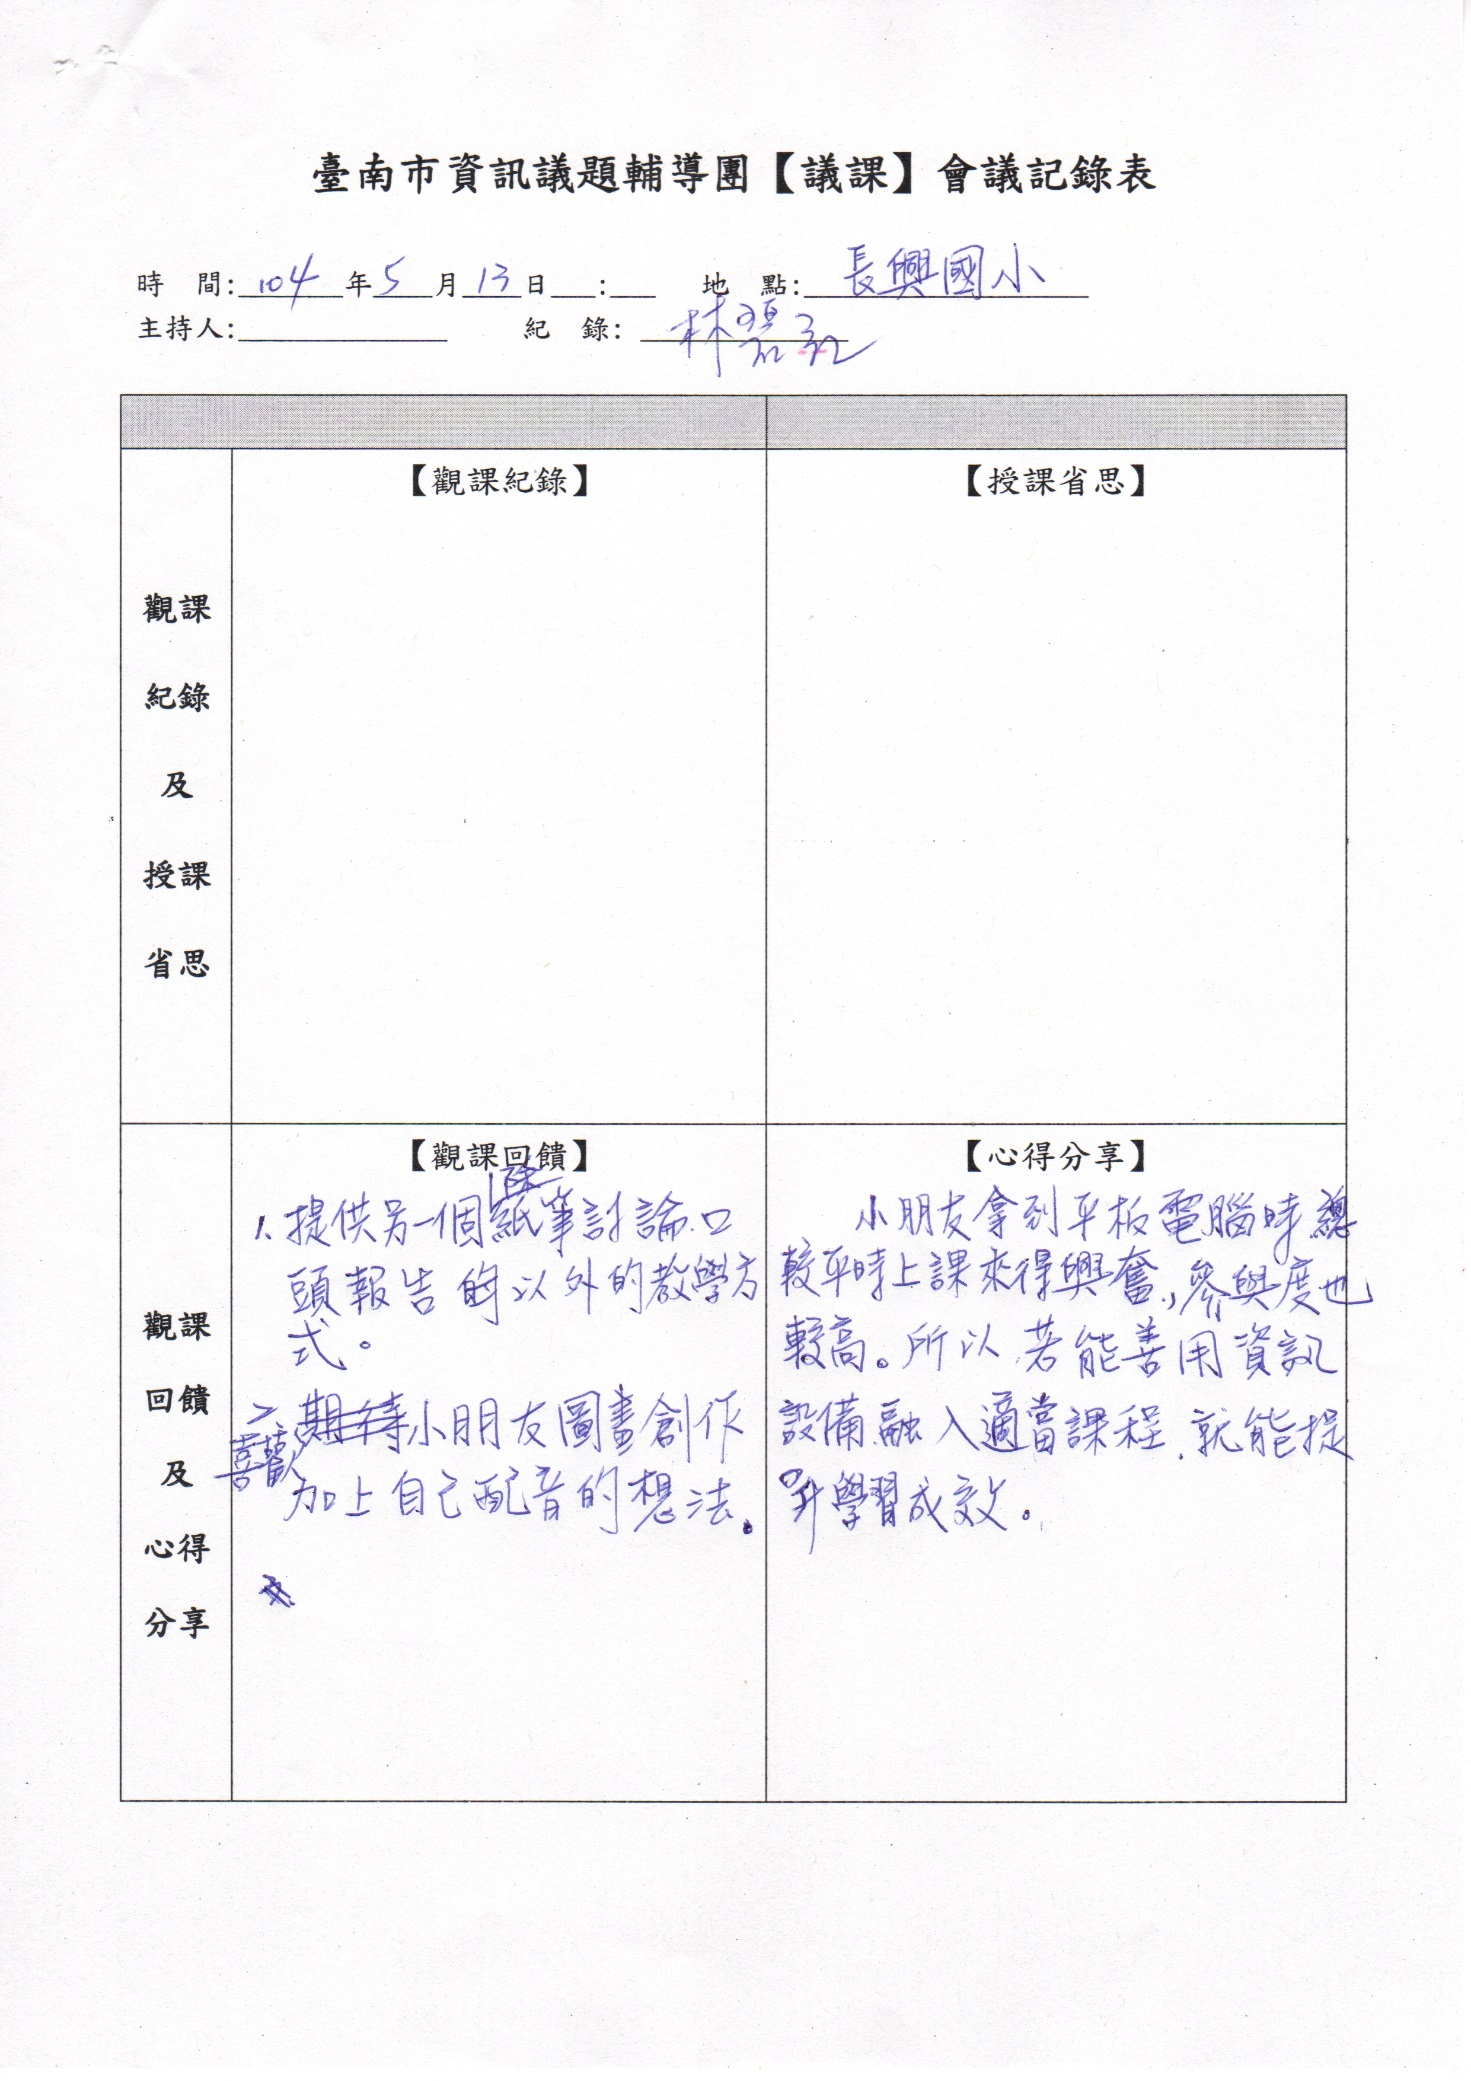 臺南市資訊議題輔導團【議課】會議記錄表
時 間:104年5月13日__:__ 地 點:長興國小
主持人: 紀 錄: 林碧
【觀課紀錄】
【授課省思】
觀課
紀錄
及
授課
省思
【觀課回饋】
除
1. 提供另一個紙筆討論、口
頭報告 以外的教學方
式。
2. 期待小朋友圖畫創作
喜歡
加上自己配音的想法。
【心得分享】
小朋友拿到平板電腦時總
較平時上課來得興奮,參與度也
較高。所以,若能善用資訊
設備融入適當課程,就能提
升學習成效。
觀課
回饋
及
心得
分享